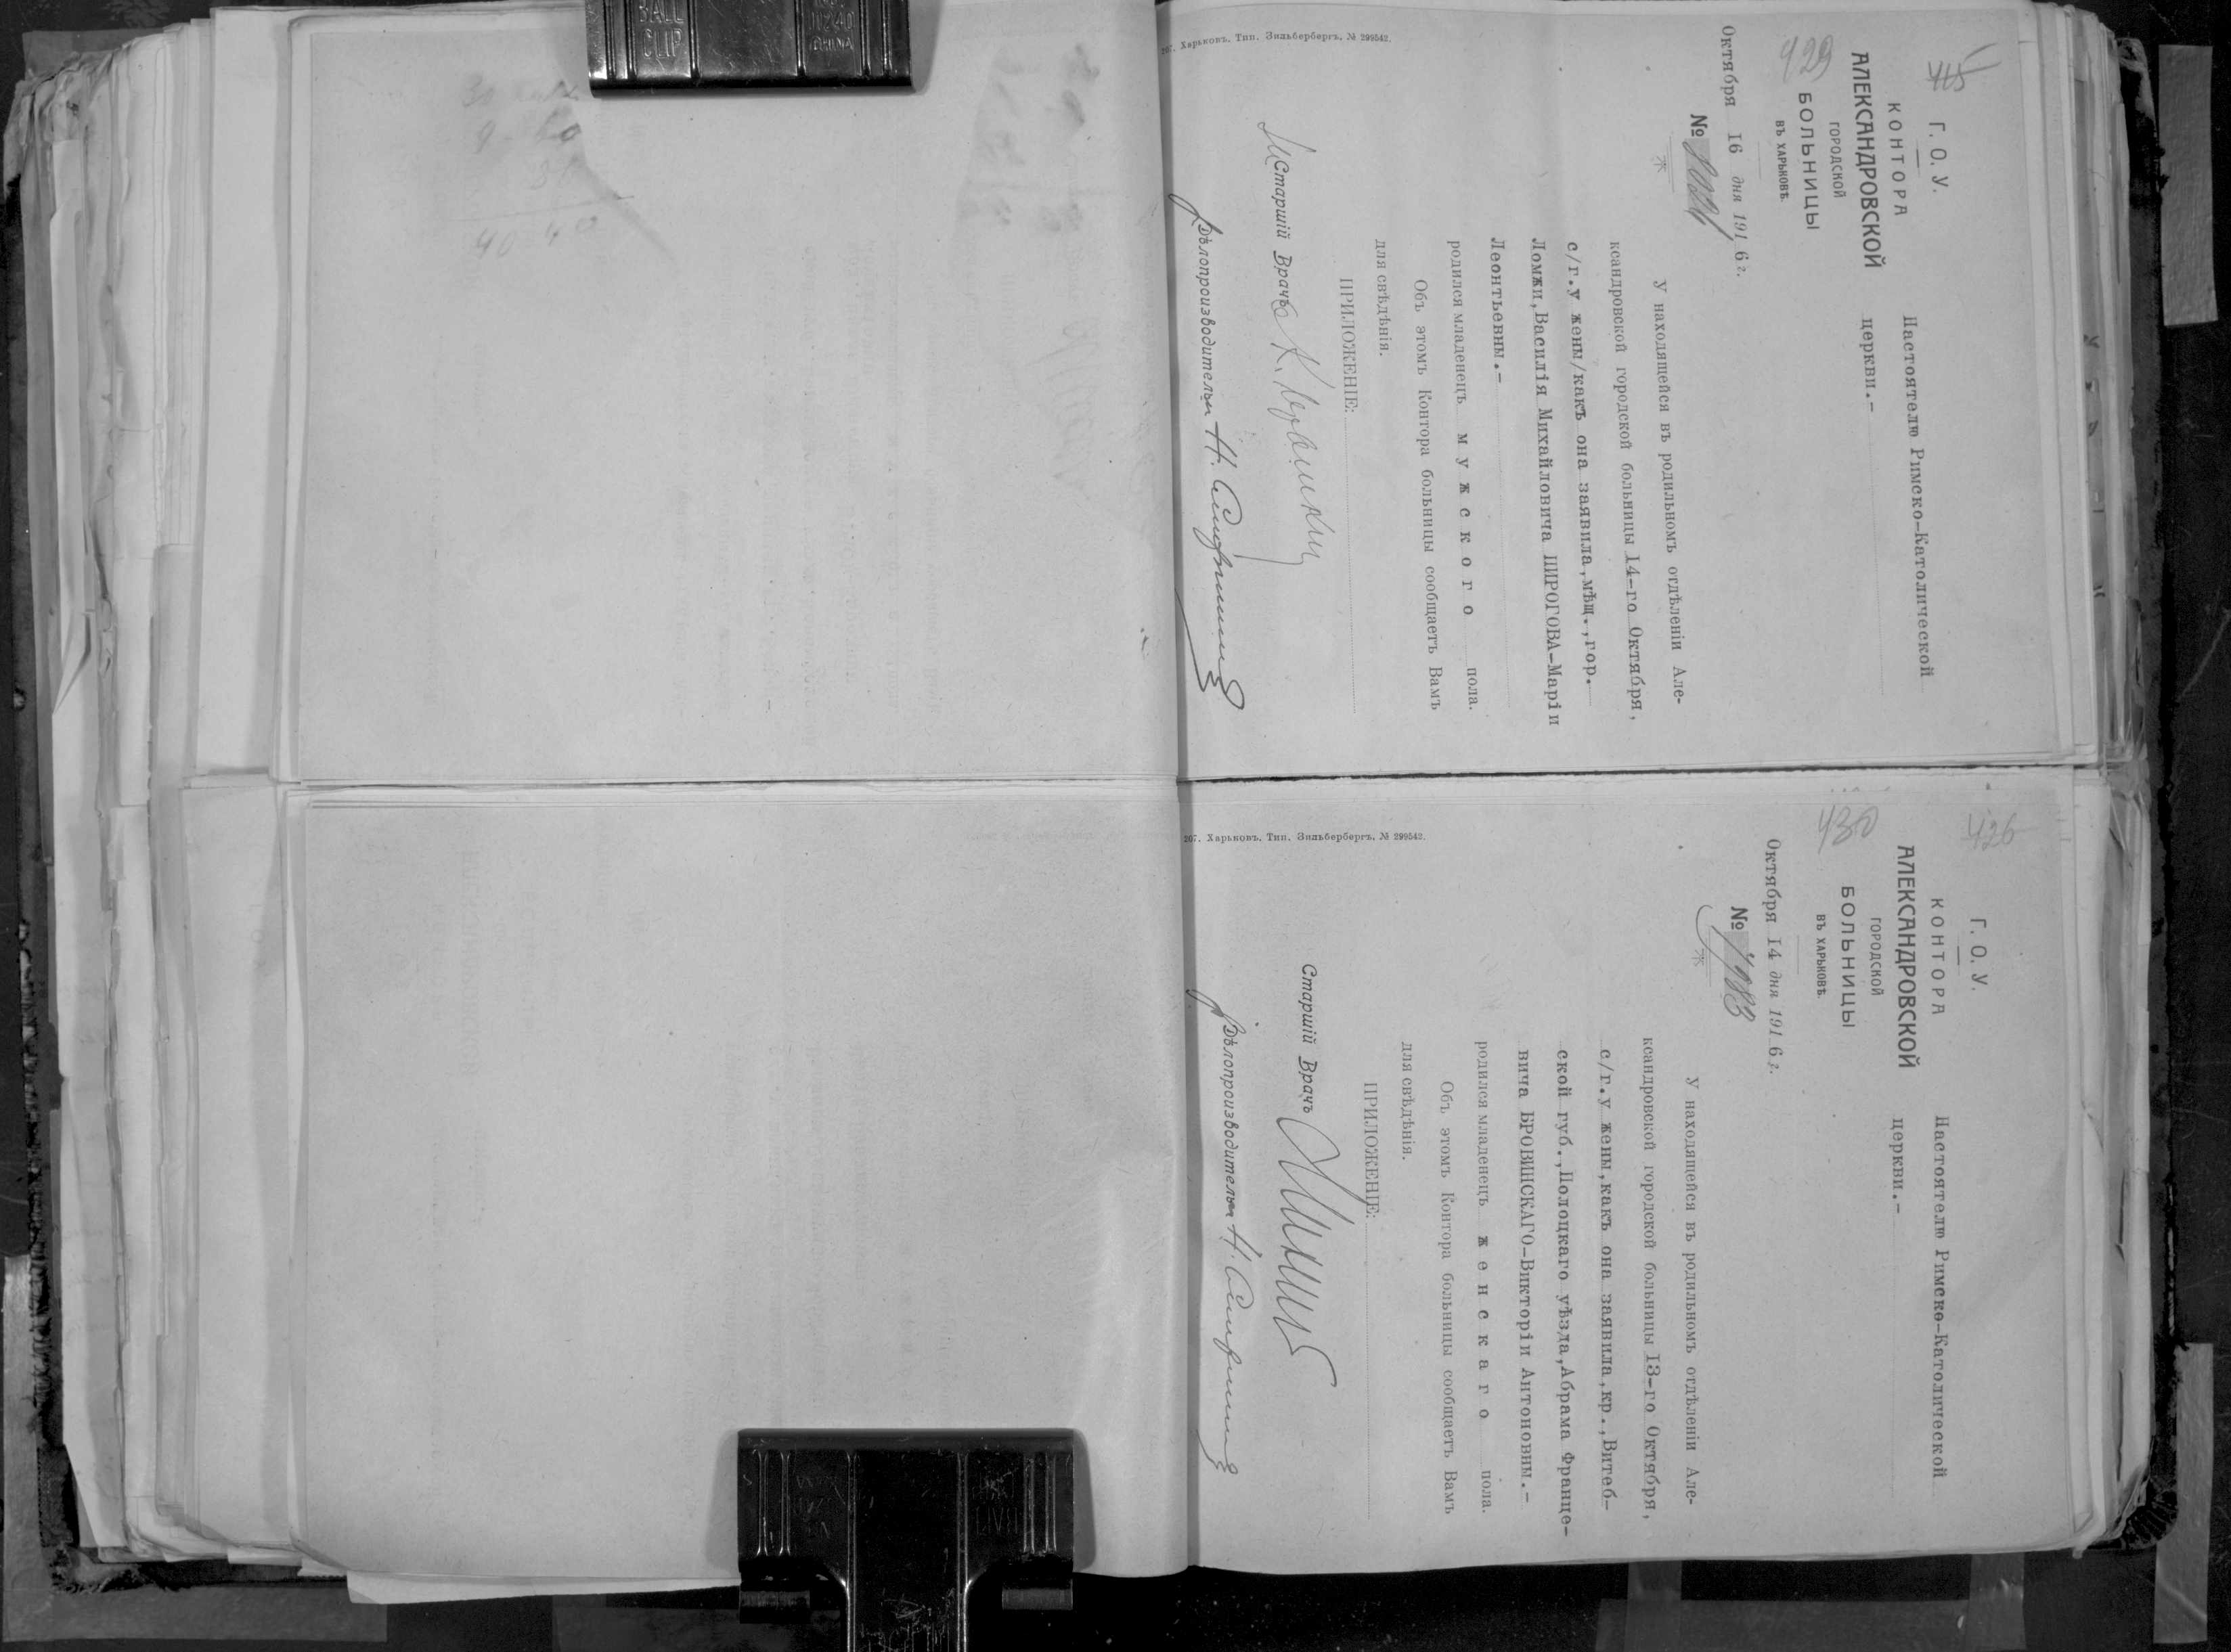 415
Г. О. У.
КОНТОРА
АЛЕКСАНДРОВСКОЙ
ГОРОДСКОЙ
429 БОЛЬНИЦЫ
ВЪ ХАРЬКОВѢ.
Октября 16 дня 1916 г.
№
Настоятелю Римско-Католической
церкви.-
У находящейся въ родильномъ отдѣленіи Але-
ксандровской городской больницы 14-го Октября,
с/г.у жены/какъ она заявила,мѣщ.,гор.
Ломжи,Василія Михайловича ПИРОГОВА-Маріи
Леонтьевны.-
родился младенецъ мужского пола.
Объ этомъ Контора больницы сообщаетъ Вамъ
для свѣдѣнія.
ПРИЛОЖЕНІЕ:
Старшій Врачъ
Дѣлопроизводитель Н.
207. Харьковъ. Тип. Зильбербергъ, № 299542.
426
Г. О. У.
КОНТОРА
АЛЕКСАНДРОВСКОЙ
ГОРОДСКОЙ
430 БОЛЬНИЦЫ
ВЪ ХАРЬКОВѢ.
Октября 14 дня 1916 г.
№ 7983
Настоятелю Римско-Католической
церкви.-
У находящейся въ родильномъ отдѣленіи Але-
ксандровской городской больницы 13-го Октября,
с/г.у жены,какъ она заявила,кр.,Витеб-
ской губ.,Полоцкаго уѣзда,Абрама Франце-
вича БРОВИНСКАГО-Викторіи Антоновны.-
родился младенецъ женскаго пола.
Объ этомъ Контора больницы сообщаетъ Вамъ
для свѣдѣнія.
ПРИЛОЖЕНІЕ:
Старшій Врачъ
Дѣлопроизводитель Н.
207. Харьковъ. Тип. Зильбербергъ, № 299542.